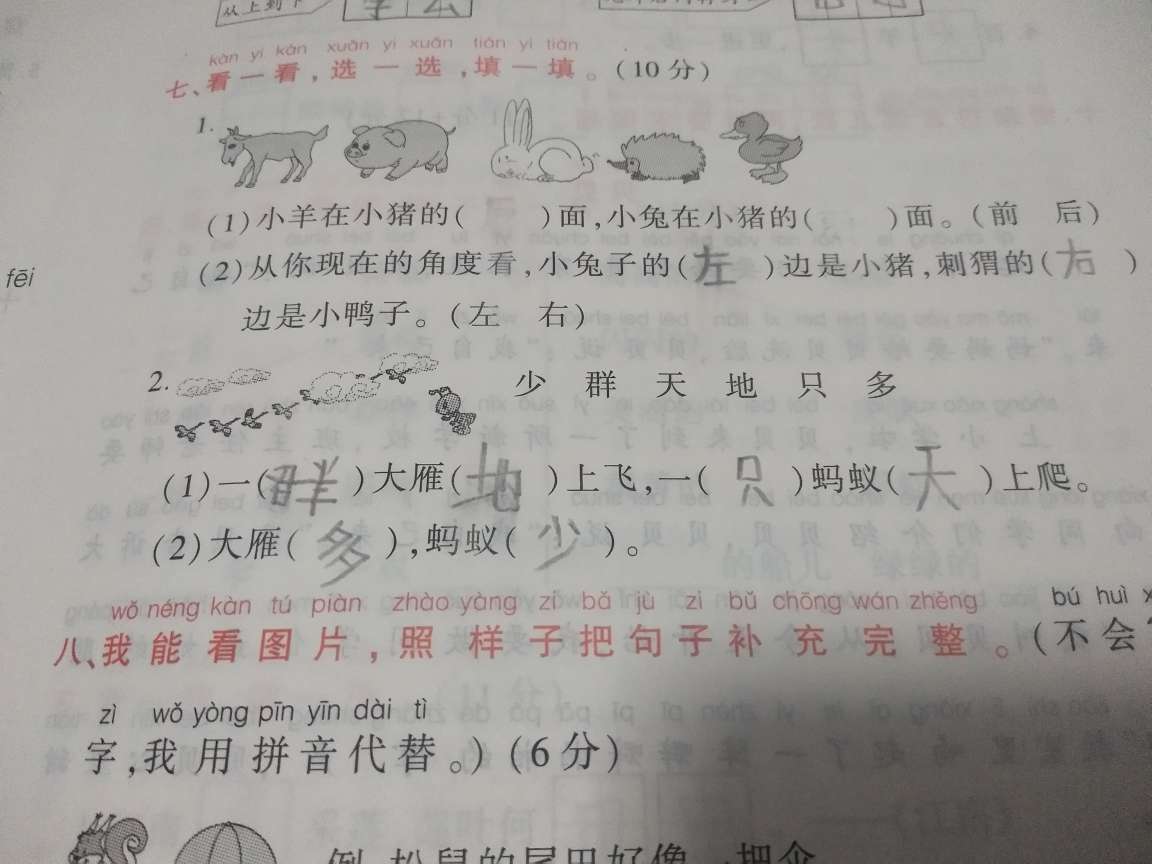 从上到下
kàn yi kàn xuǎn yi xuǎn tián yi tián
七、看一看,选一选,填一填。(10分)
1.
(1)小羊在小猪的( )面,小兔在小猪的( )面。(前 后)
fēi
(2)从你现在的角度看,小兔子的(左)边是小猪,刺猬的(右)
边是小鸭子。(左 右)
2. 少 群 天 地 只 多
(1)一(群)大雁(地)上飞,一(只)蚂蚁(天)上爬。
(2)大雁(多),蚂蚁(少)。
wǒ néng kàn tú piàn zhào yàng zi bǎ jù zi bǔ chōng wán zhěng bú huì
八、我能看图片,照样子把句子补充完整。(不会
zì wǒ yòng pīn yīn dài tì
字,我用拼音代替。)(6分)
例 松鼠的尾巴好像一把伞